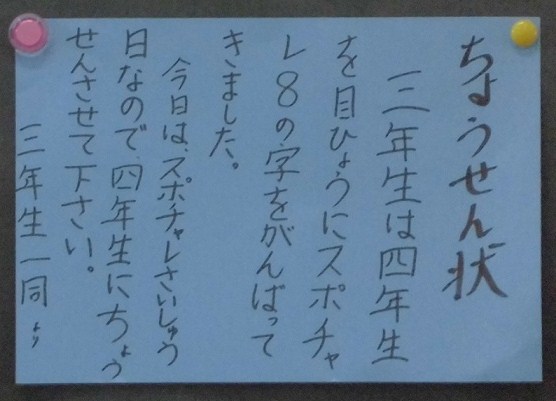 ちょうせん状
三年生は四年生
を目ひょうにスポチャ
レ8の字をがんばって
きました。
今日は、スポチャレさいしゅう
日なので、四年生にちょう
せんさせて下さい。
三年生一同より